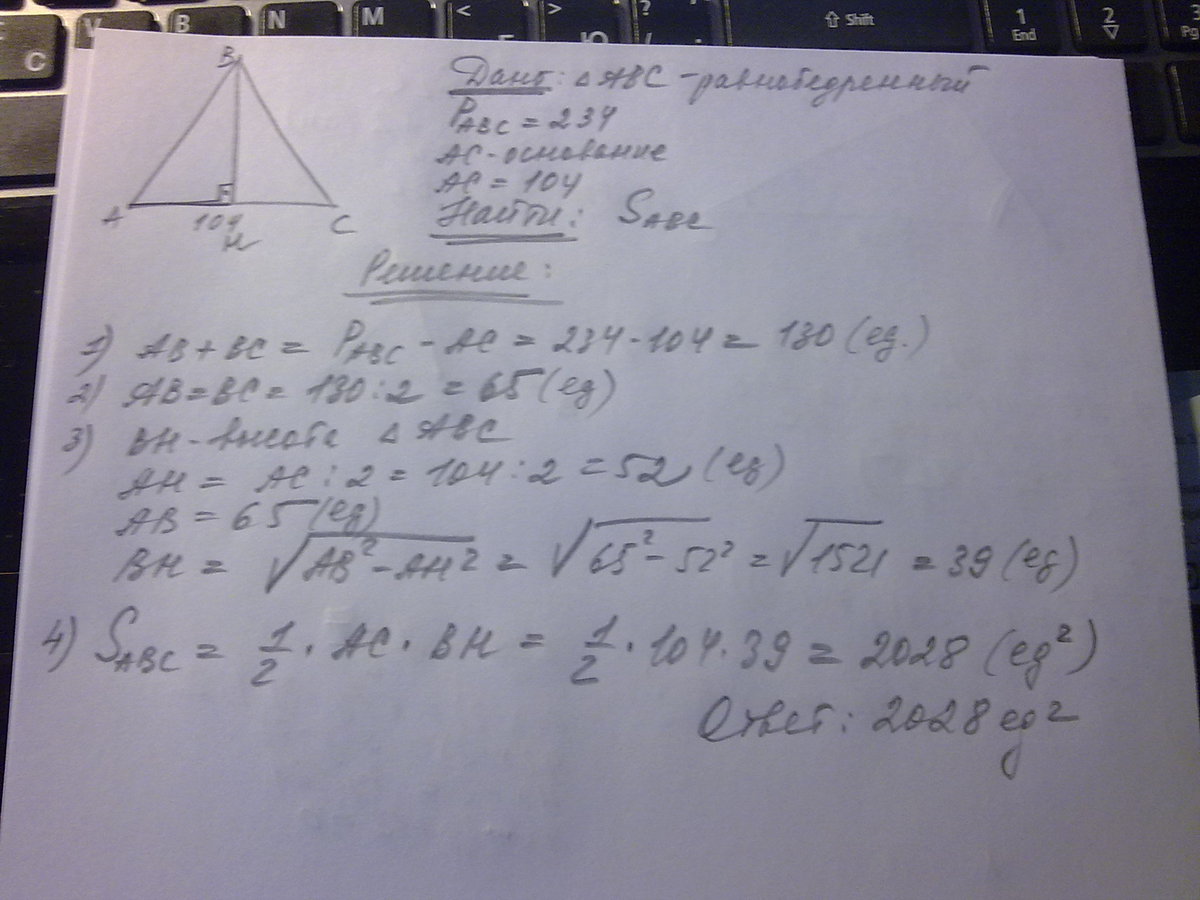 C
V
B
N
M
<
>
Ю
?
/
.
⇧ Shift
1
End
2
▽
3
Pg
B
A
104
H
C
Дано: △ABC - равнобедренный
P_ABC = 234
AC - основание
AC = 104
Найти: S_ABC
Решение:
1) AB + BC = P_ABC - AC = 234 - 104 = 130 (ед.)
2) AB = BC = 130 : 2 = 65 (ед)
3) BH - высота △ ABC
AH = AC : 2 = 104 : 2 = 52 (ед)
AB = 65 (ед)
BH = √AB² - AH² = √65² - 52² = √1521 = 39 (ед)
4) S_ABC = 1/2 · AC · BH = 1/2 · 104 · 39 = 2028 (ед²)
Ответ: 2028 ед²